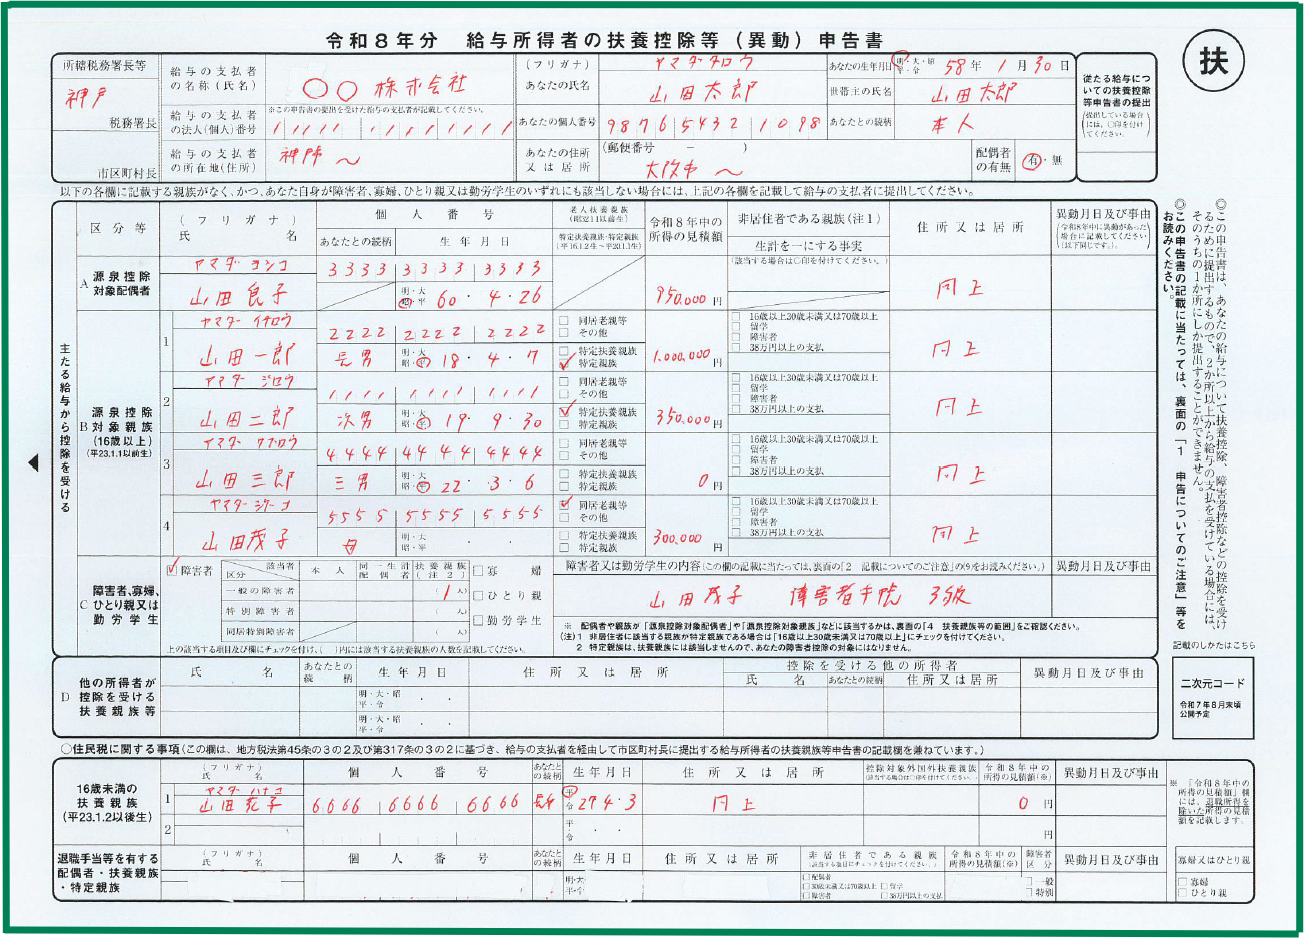 令和8年分 給与所得者の扶養控除等(異動)申告書
扶
所轄税務署長等
神戸
税務署長
市区町村長
給与の支払者の名称(氏名)
〇〇 株式会社
※この申告書の提出を受けた給与の支払者が記載してください。
給与の支払者の法人(個人)番号
給与の支払者の所在地(住所)
神戸市 〜
(フリガナ) ヤマダタロウ
あなたの氏名 山田太郎
あなたの個人番号 9876 5432 1098
あなたの住所又は居所
(郵便番号 - )
大阪市 〜
あなたの生年月日 明・大・昭 平・令 58年 1月 30日
世帯主の氏名 山田太郎
あなたとの続柄 本人
配偶者の有無 有・無
従たる給与についての扶養控除等申告書の提出
(提出している場合には、○印を付けてください。)
以下の各欄に記載する親族がなく、かつ、あなた自身が障害者、寡婦、ひとり親又は勤労学生のいずれにも該当しない場合には、上記の各欄を記載して給与の支払者に提出してください。
主たる給与から控除を受ける
区分等
(フリガナ) 氏名
個人番号
あなたとの続柄
生年月日
老人扶養親族 (昭32.1.1以前生)
特定扶養親族・特定親族 (平16.1.2生〜平20.1.1生)
令和8年中の所得の見積額
非居住者である親族(注1)
生計を一にする事実
(該当する場合は○印を付けてください。)
住所又は居所
異動月日及び事由
(令和8年中に異動があった場合に記載してください(以下同じです。)。)
A 源泉控除対象配偶者
ヤマダ ヨシコ
山田良子
3333 3333 3333
明・大 昭・平 60・4・26
950,000円
同上
B 源泉控除対象親族(16歳以上)(平23.1.1以前生)
1 ヤマダ イチロウ
山田一郎
2222 2222 2222
長男 明・大 昭・平 18・4・7
□同居老親等 □その他
□特定扶養親族 ☑特定親族
1,000,000円
□16歳以上30歳未満又は70歳以上
□留学
□障害者
□38万円以上の支払
同上
2 ヤマダ ジロウ
山田二郎
1111 1111 1111
次男 明・大 昭・平 19・9・30
□同居老親等 □その他
☑特定扶養親族 □特定親族
350,000円
□16歳以上30歳未満又は70歳以上
□留学
□障害者
□38万円以上の支払
同上
3 ヤマダ サブロウ
山田三郎
4444 4444 4444
三男 明・大 昭・平 22・3・6
□同居老親等 □その他
□特定扶養親族 □特定親族
0円
□16歳以上30歳未満又は70歳以上
□留学
□障害者
□38万円以上の支払
同上
4 ヤマダ シゲコ
山田茂子
5555 5555 5555
母 明・大 昭・平 ・ ・
☑同居老親等 □その他
□特定扶養親族 □特定親族
300,000円
□16歳以上30歳未満又は70歳以上
□留学
□障害者
□38万円以上の支払
同上
C 障害者、寡婦、ひとり親又は勤労学生
☑障害者
区分 該当者 本人 同一生計配偶者 扶養親族(注2)
一般の障害者 (1人)
特別障害者 (人)
同居特別障害者 (人)
□寡婦
□ひとり親
□勤労学生
上の該当する項目及び欄にチェックを付け、( )内には該当する扶養親族の人数を記載してください。
障害者又は勤労学生の内容(この欄の記載に当たっては、裏面の「2 記載についてのご注意」の(9)をお読みください。)
異動月日及び事由
山田茂子 障害者手帳 3級
※ 配偶者や親族が「源泉控除対象配偶者」や「源泉控除対象親族」などに該当するかは、裏面の「4 扶養親族等の範囲」をご確認ください。
(注)1 非居住者に該当する親族が特定親族である場合は「16歳以上30歳未満又は70歳以上」にチェックを付けてください。
2 特定親族は、扶養親族には該当しませんので、あなたの障害者控除の対象にはなりません。
D 他の所得者が控除を受ける扶養親族等
氏名
あなたとの続柄
生年月日
住所又は居所
控除を受ける他の所得者
氏名 あなたとの続柄 住所又は居所
異動月日及び事由
明・大・昭 平・令 ・ ・
明・大・昭 平・令 ・ ・
○住民税に関する事項(この欄は、地方税法第45条の3の2及び第317条の3の2に基づき、給与の支払者を経由して市区町村長に提出する給与所得者の扶養親族等申告書の記載欄を兼ねています。)
16歳未満の扶養親族(平23.1.2以後生)
(フリガナ) 氏名
個人番号
あなたとの続柄
生年月日
住所又は居所
控除対象外国外扶養親族 (該当する場合は○印を付けてください。)
令和8年中の所得の見積額(※)
異動月日及び事由
1 ヤマダ ハナコ
山田花子
6666 6666 6666
長女 平・令 27・4・3
同上
0円
2 平・令 ・ ・ 円
※「令和8年中の所得の見積額」欄には、退職所得を除いた所得の見積額を記載します。
退職手当等を有する配偶者・扶養親族・特定親族
(フリガナ) 氏名
個人番号
あなたとの続柄
生年月日
明・大・
平・令
住所又は居所
非居住者である親族
(該当する項目にチェックを付けてください。)
□配偶者
□30歳未満又は70歳以上 □留学
□障害者 □38万円以上の支払
令和8年中の所得の見積額(※)
障害者区分
□一般
□特別
異動月日及び事由
寡婦又はひとり親
□寡婦
□ひとり親
◎この申告書は、あなたの給与について扶養控除、障害者控除などの控除を受けるために提出するもので、2か所以上から給与の支払を受けている場合には、そのうちの1か所にしか提出することができません。
◎この申告書の記載に当たっては、裏面の「1 申告についてのご注意」等をお読みください。
記載のしかたはこちら
二次元コード
令和7年8月末頃公開予定